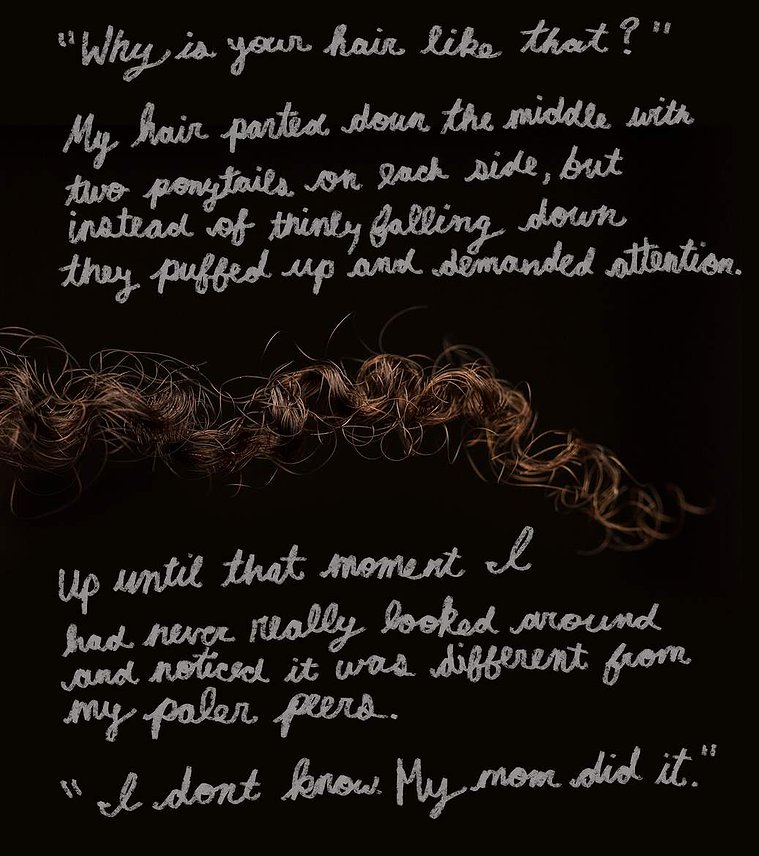 "Why is your hair like that?"
My hair parted down the middle with
two ponytails on each side, but
instead of thinly falling down
they puffed up and demanded attention.
Up until that moment I
had never really looked around
and noticed it was different from
my paler peers.
"I dont know My mom did it."